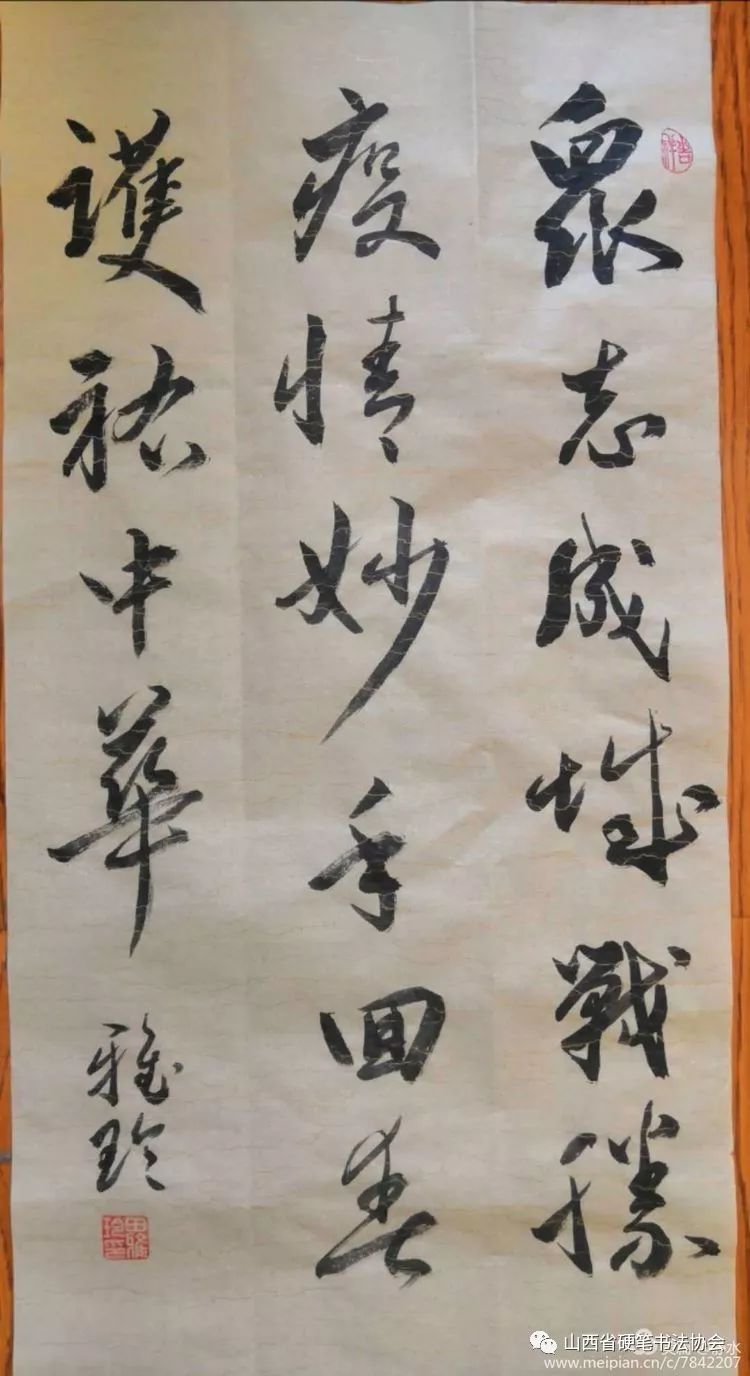 眾志成城戰勝
疫情妙手回春
護祐中華
雅玲
吉祥
山西省硬笔书法协会
www.meipian.cn/c/7842207